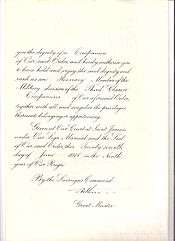 you the dignity of a Companion
of Our said Order, and hereby authorise you
to have hold and enjoy the said dignity and
rank as an Honorary Member of the
Military division of the Third Class or
Companions of Our aforesaid Order,
together with all and singular the privileges
thereunto belonging or appertaining.
Given at Our Court at Saint James's
under Our Sign Manual and the Seal
of Our said Order, this Twenty seventh
day of June in the Ninth
year of Our Reign.
By the Sovereign's Command
Grand Master